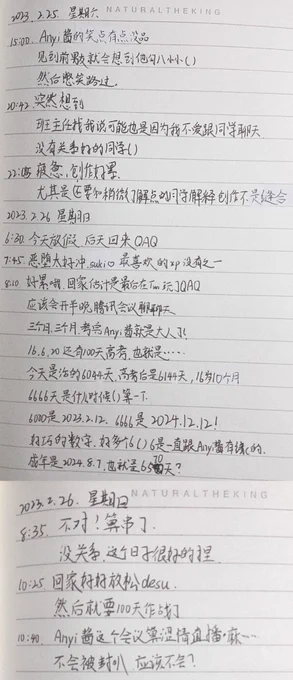 NATURALTHEKING
2023.2.25. 星期六
15:00. Anyi酱的笑点有点没品
见到前数就会想到他勾八小小()
然后憋笑路过.
20:42. 突然想到
班主任找我说可能也是因为我不爱跟同学聊天
没有关系好的同学()
疲惫, 创作好累.
尤其是还要和稍微了解点的同学解释创作不是缝合
2023.2.26 星期日
6:30. 今天放假. 后天回来QAQ
7:45. 恶堕太好冲. suki□ 最喜欢的xp没有之一
8:10 好累哦. 回家估计是最后在 玩了QAQ
应该会开手晚. 腾讯会议聊聊天
三个月. 三个月. 考完Anyi酱就是大人了!
16.6.20 还有100天高考. 也就是……
今天是活的6044天. 高考后是6144天, 16岁10个月
6666天是什么时候()算一下
6000是2023.2.12. 6666是2024.12.12!
好巧的数字. 好多个6()6是一直跟Anyi酱有缘的.
成年是2024.8.7. 也就是65 天?
NATURALTHEKING
2023.2.26. 星期日
8:35. 不对! 算书了.
没关系. 这个日子很好的捏.
10:25 回家好好放松desu.
然后就要100天作战了
10:40. Anyi酱这个会议算涩情直播·麻…
不会被封叭 应该不会?